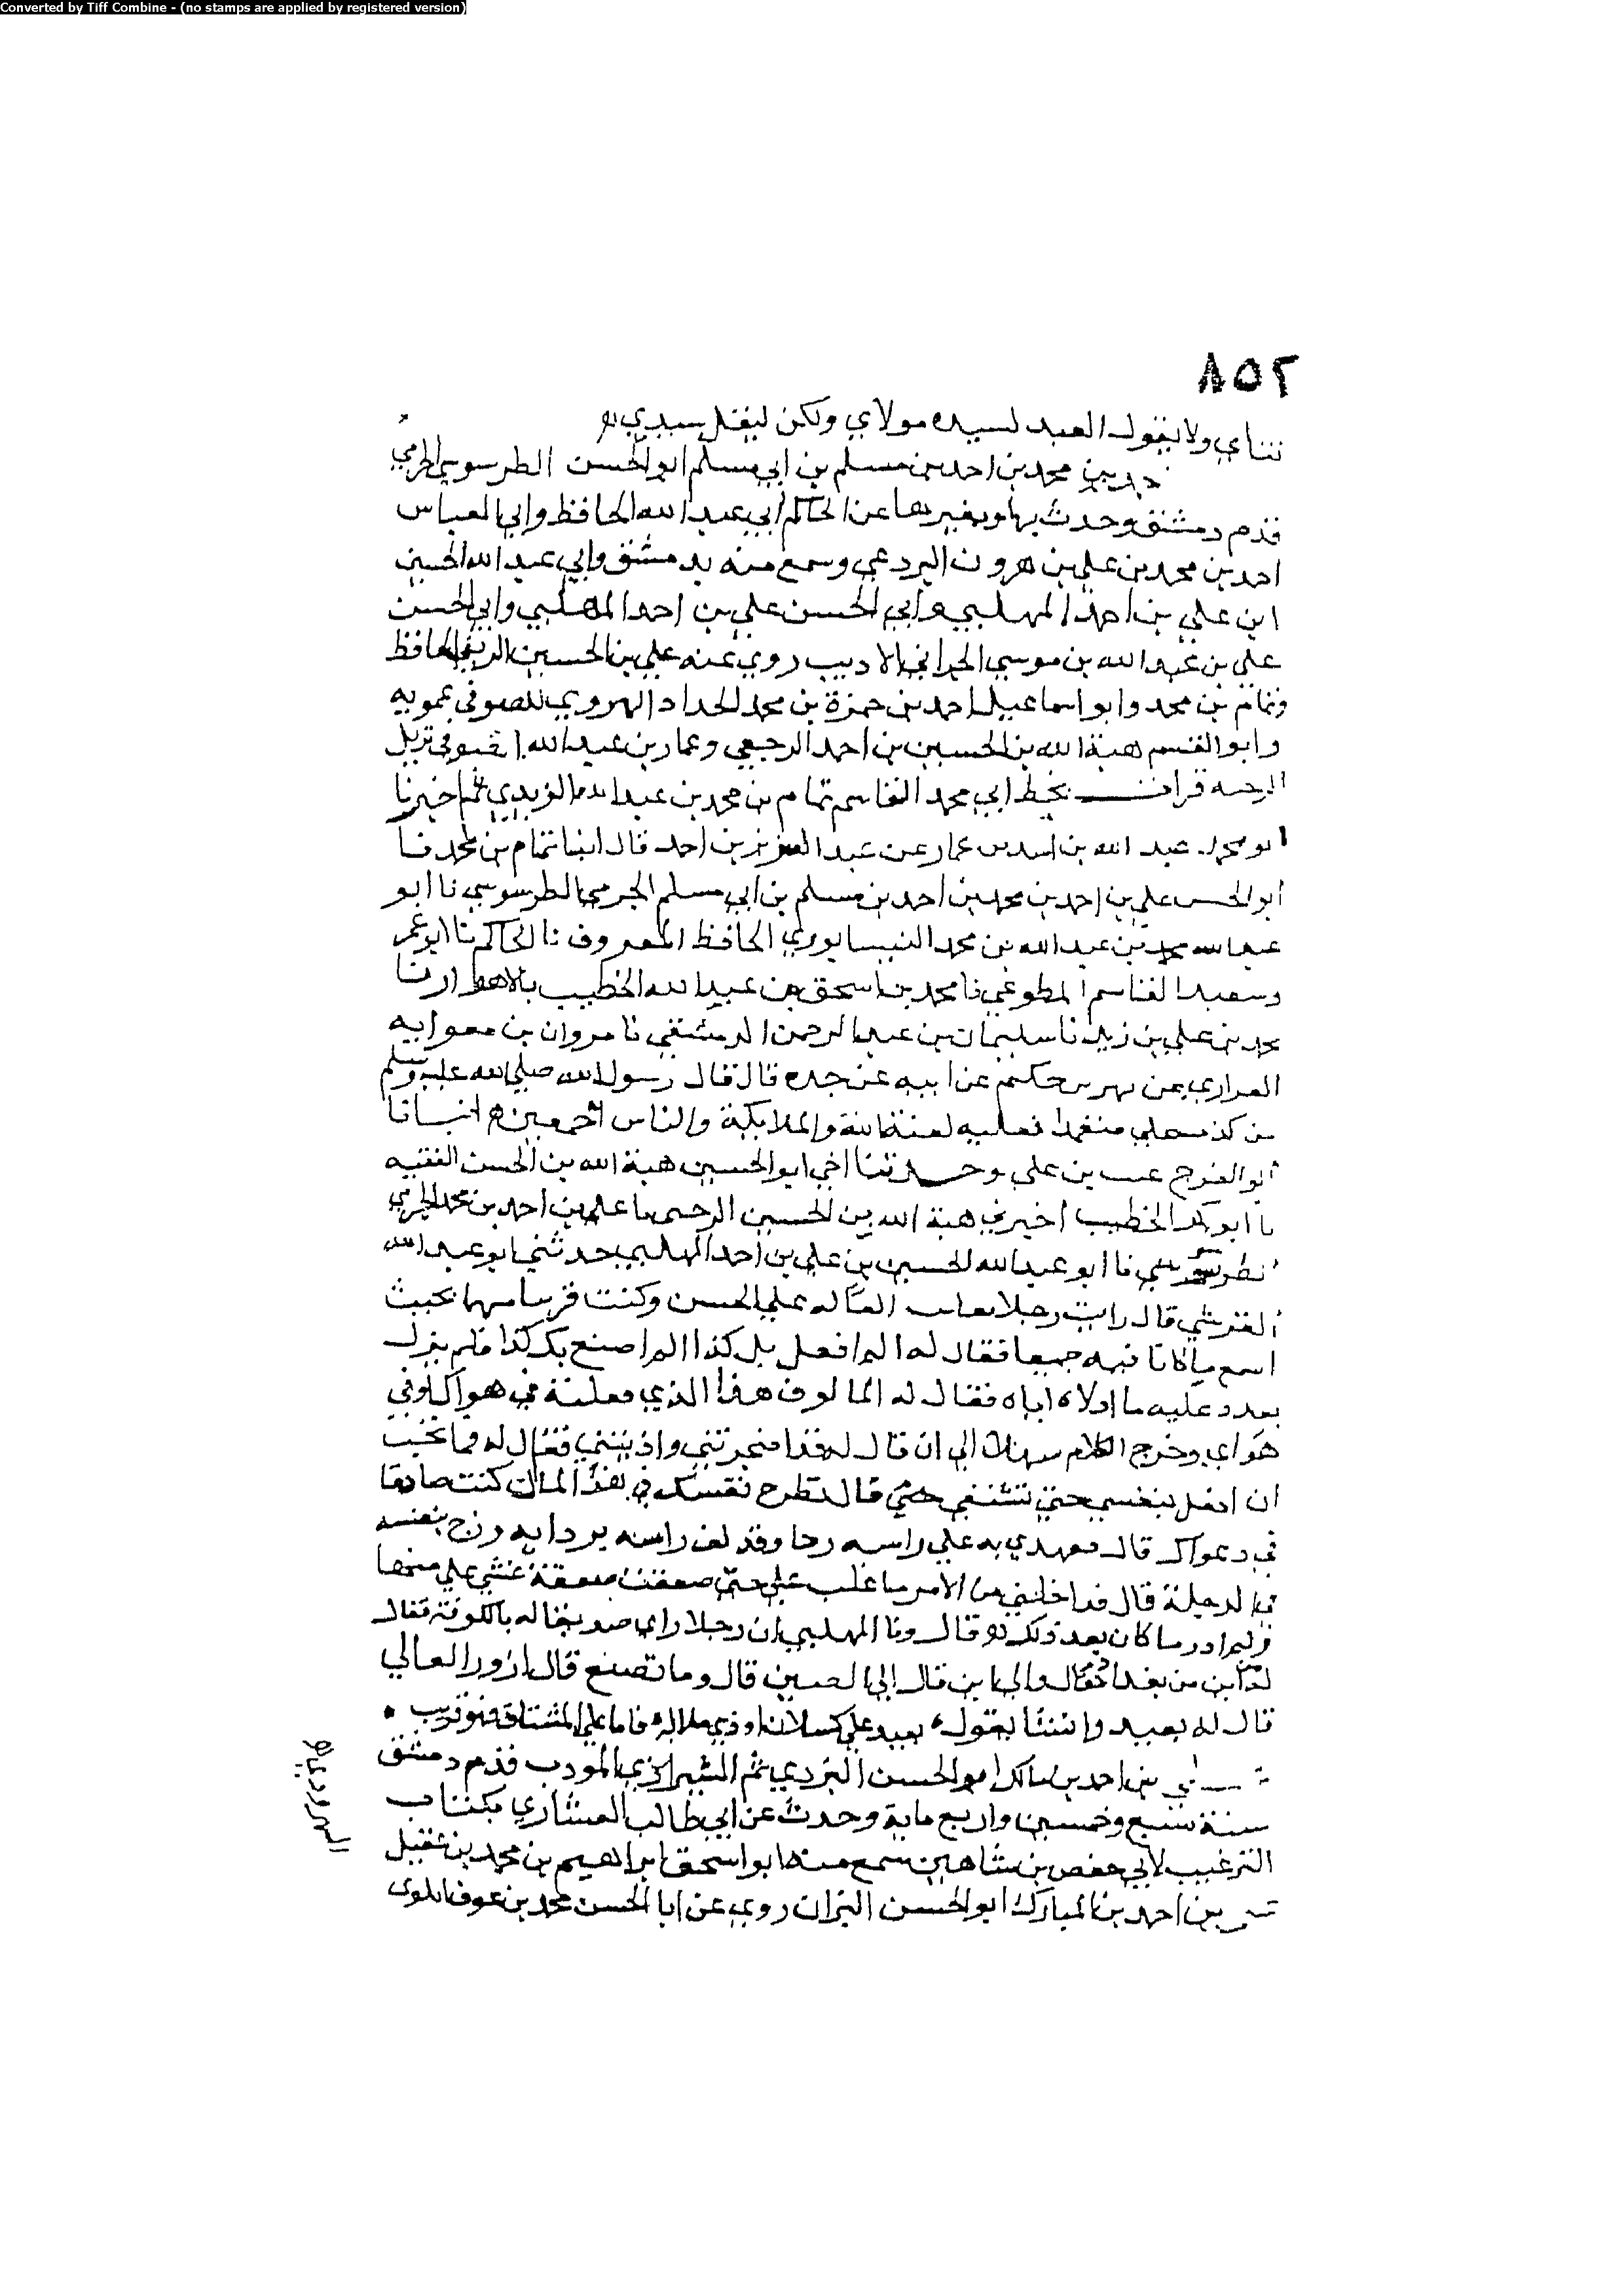 Converted by Tiff Combine - (no stamps are applied by registered version)
٨٥٢
فتاي ولا يقول العبد لسيده مولاي ولكن ليقل سيدي
بن محمد بن احمد بن مسلم بن ابي مسلم ابو الحسن الطرسوسي الجرمي
قدم دمشق وحدث بها وبغيرها عن الحاكم ابي عبد الله الحافظ وابي العباس
احمد بن محمد بن علي بن هرون البردعي وسمع منه بدمشق وابي عبد الله الحسين
ابن علي بن احمد المهلبي وابي الحسن علي بن احمد المهلبي وابي الحسن
علي بن عبد الله بن موسي الحراني الاديب روي عنه علي بن الحسين الحافظ
وتمام بن محمد وابو اسماعيل احمد بن حمزة بن محمد الحداد الهروي الصوفي بعمويه
وابو القسم هبة الله بن الحسين بن احمد الرحبي وعمار بن عبد الله نزيل
الرحبه قرات بخط ابي محمد القاسم تمام بن محمد بن عبد الله اخبرنا
ابو محمد عبد الله بن اسد بن عمار عن عبد العزيز بن احمد قال انبا تمام بن محمد نا
ابو الحسن علي بن احمد بن محمد بن احمد بن مسلم بن ابي مسلم الجرمي الطرسوسي نا ابو
عبد الله محمد بن عبد الله بن محمد النيسابوري الحافظ المعروف نا الحاكم نا ابو عمر
وسعيد القاسم المطوعي نا محمد بن اسحق بن عبد الله الخطيب بالاهواز نا
محمد بن علي بن زيد نا سليمان بن عبد الرحمن الدمشقي نا مروان بن معوايه
الفزاري عن بهز بن حكيم عن ابيه عن جده قال قال رسول الله صلي الله عليه وسلم
من كذب علي متعمدا فعليه لعنة الله والملايكة والناس اجمعين انبانا
ابو الفرج غيث بن علي وحدثنا اخي ابو الحسين هبة الله بن الحسن الفقيه
نا ابو بكر الخطيب اخبرني هبة الله بن الحسين الرحبي نا علي بن احمد بن محمد الجرمي
الطرسوسي نا ابو عبد الله الحسين بن علي بن احمد المهلبي حدثني ابو عبد الله
القرشي قال رايت رجلا علي الحسن وكنت قريبا منهما بحيث
اسمع ما كانا فيه جميعا فقال له الم افعل بك كذا الم اصنع بك كذا فلم يزل
يعدد عليه ما اولاه اياه فقال له هذا الذي فعلته في هواك او في
هواي وخرج الكلام الي ان قال له فقد ضجرتني واذيتني فقال له فما تحب
ان افعل بنفسي حتي تشتفي مني قال تطرح نفسك في هذا الما ان كنت صادقا
في دعواك قال فعهدي به علي راسه وقد لف راسه بردايه وزج بنفسه
في الدجلة قال فداخلني من الامر ما غلب علي حتي صعقت صعقة غشي علي منها
فلم ادر ما كان بعد ذلك قال ونا المهلبي ان رجلا راي صديقا له بالكوفة فقال
له من اين من بغداد فقال والي اين قال الي الحسين قال وما تصنع قال ازور العالي
قال له بعيد وانشا يقول بعيد علي كسلان او ذي ملالة فاما علي المشتاق فهو قريب
بن احمد بن ابو الحسن اليزدي ثم الشيرازي المودب قدم دمشق
سنة سبع وخمسين واربع ماية وحدث عن ابي طالب العشاري بكتاب
الترغيب لابي حفص بن شاهين سمع منه ابو اسحق ابراهيم بن محمد بن عقيل
بن احمد بن المبارك ابو الحسن البزاز روي عن ابا الحسن محمد بن عوف